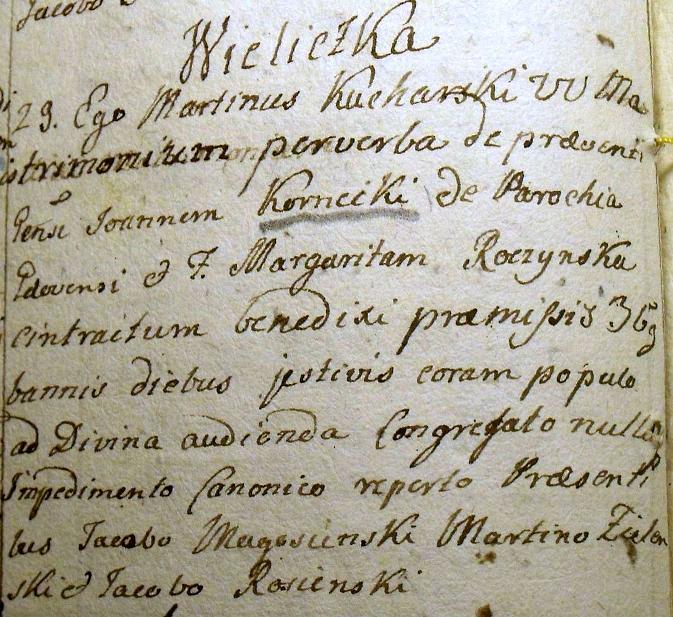 Jacobo
Wieliczka
29. Ego Martinus Kucharski VV Ma
trimonium per verba de præsenti
Joannem Korneiki de Parochia
et F. Margaritam Roczynska
cintractum benedixi præmissis 3
bannis diebus festivis coram populo
ad Divina audienda Congregato nullo
Impedimento Canonico reperto Præsenti
bus Jacobo Magosienski Martino Zielen
ski et Jacobo Rosienski